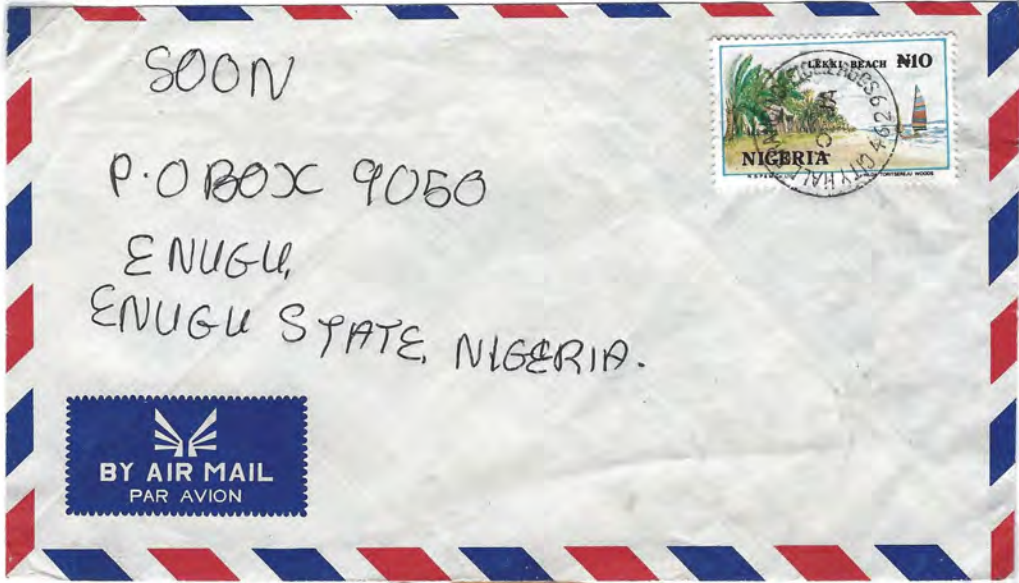 SOON
P.O BOX 9050
ENUGU,
ENUGU STATE, NIGERIA.
LEKKI BEACH ₦10
NIGERIA
CITY HALL
BY AIR MAIL
PAR AVION